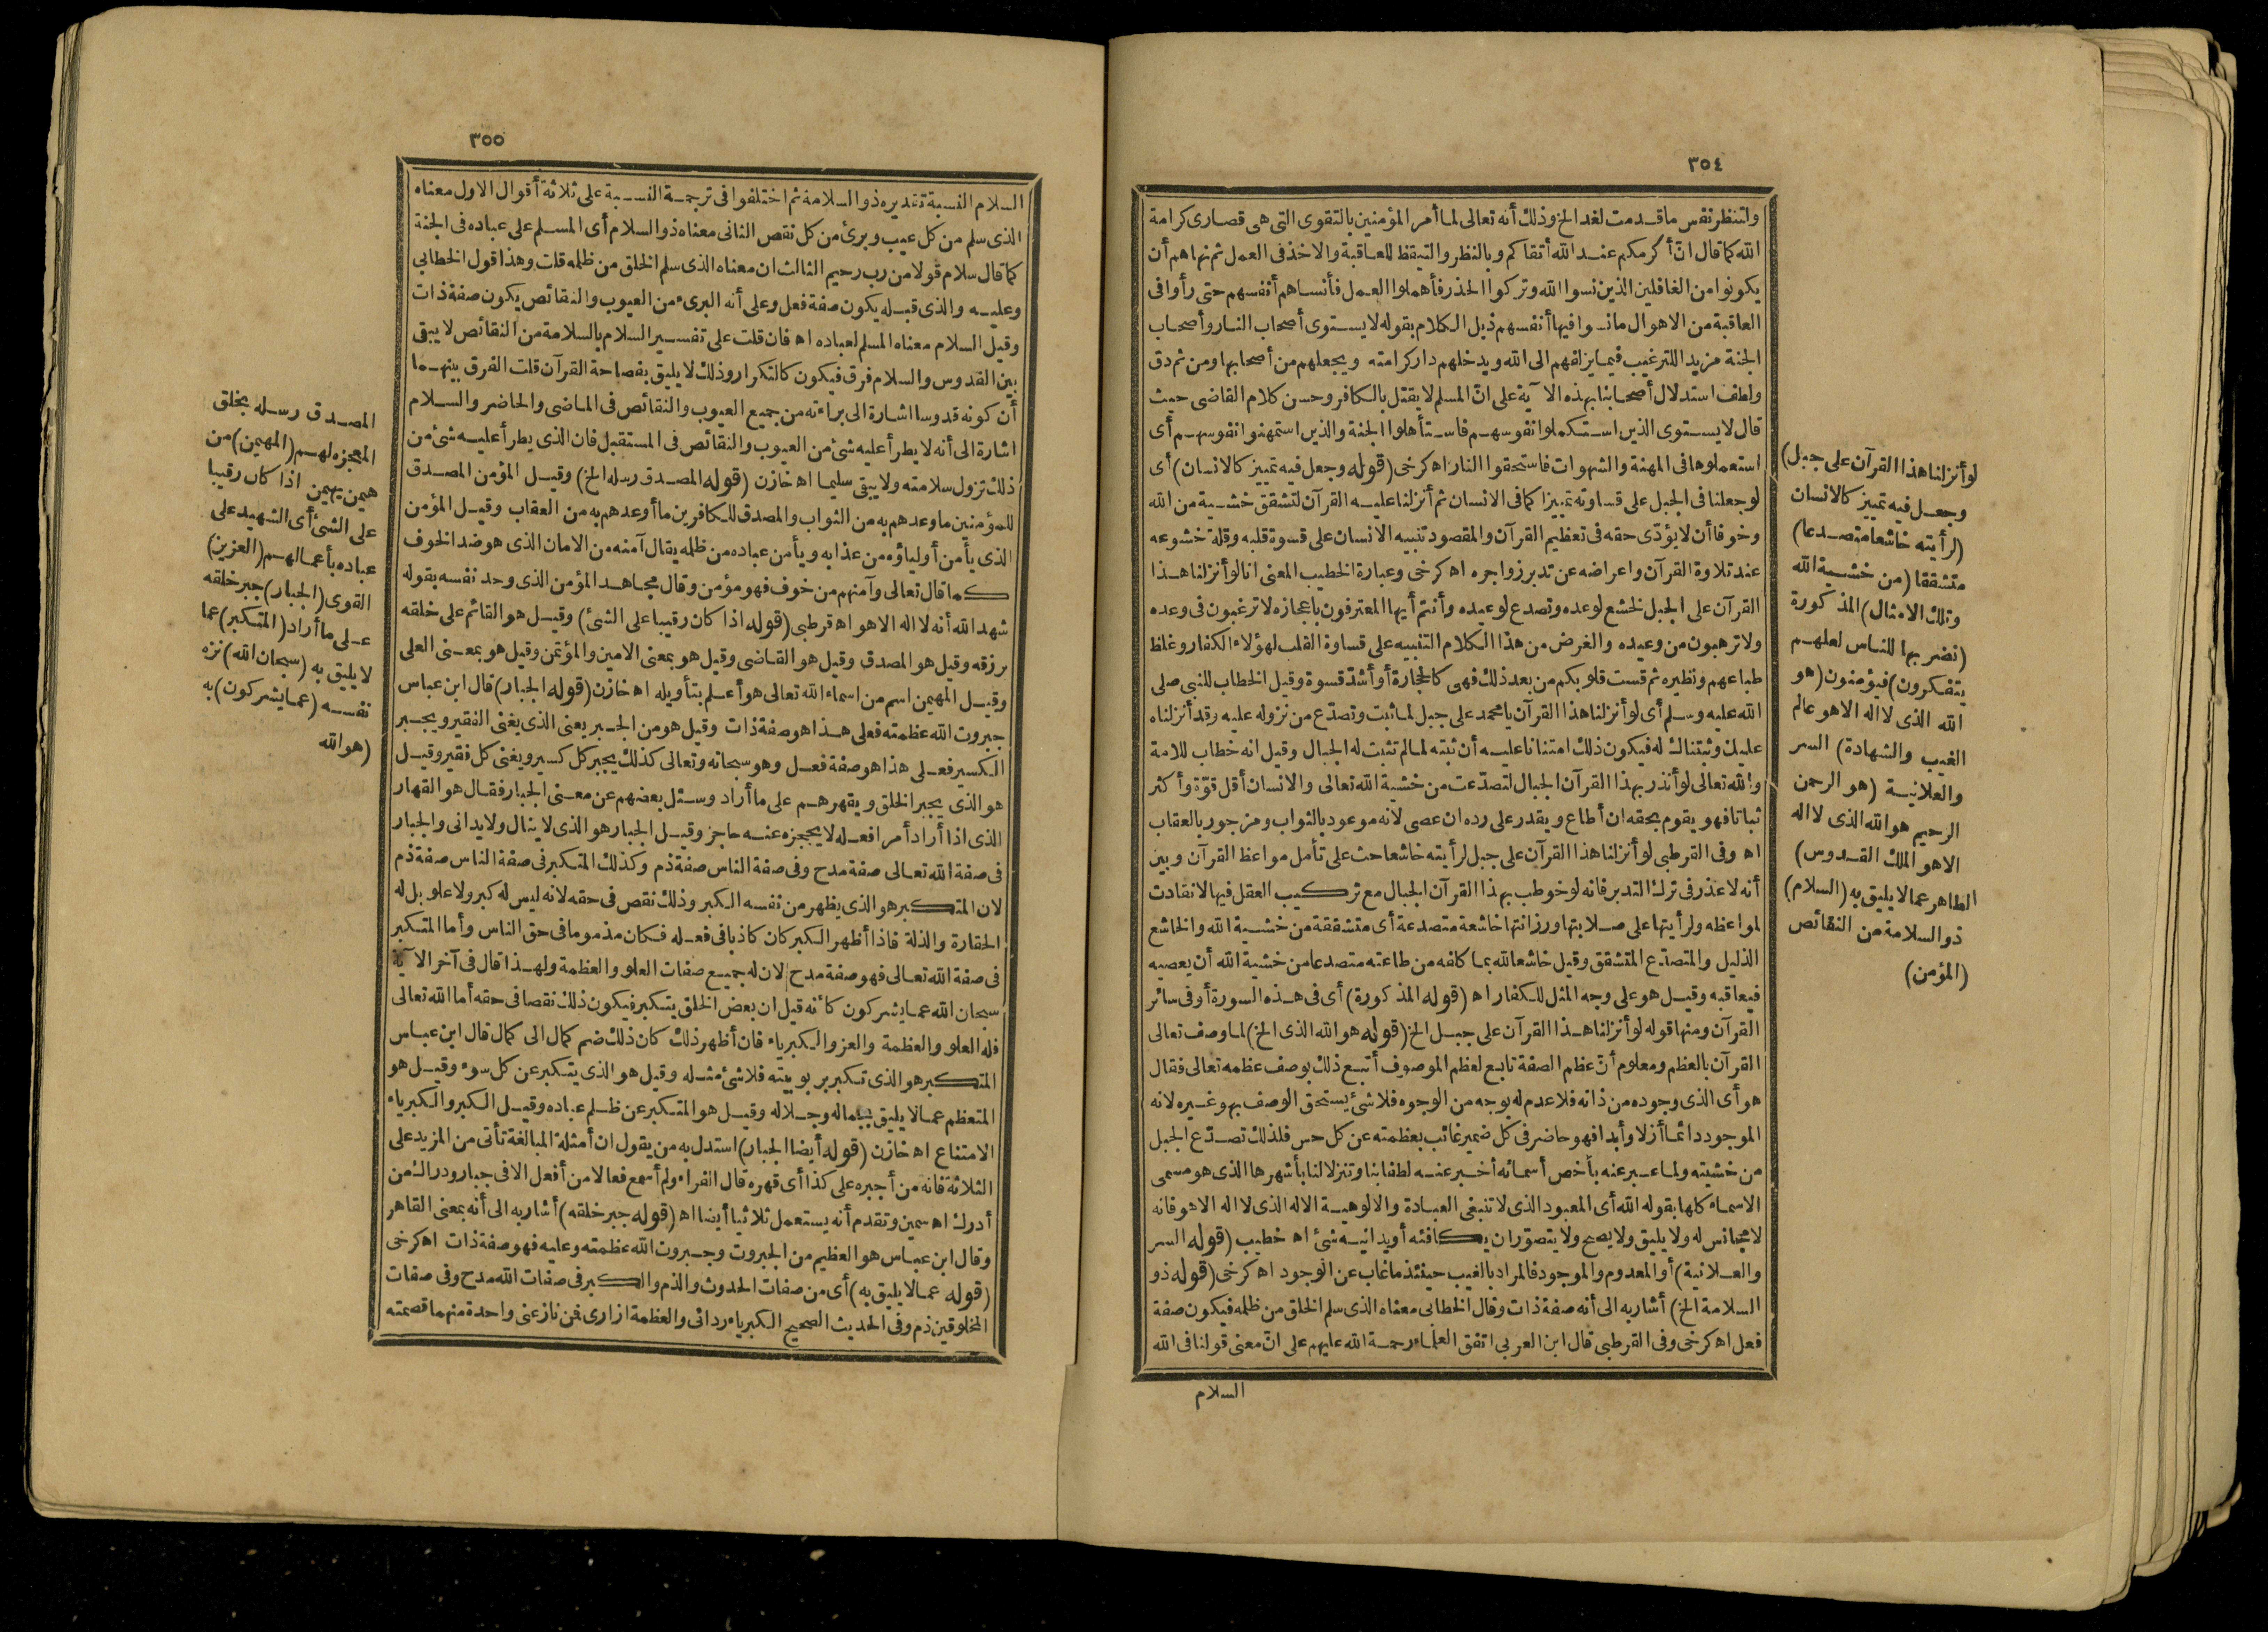 ٣٥٤
ولتنظر نفس ما قدمت لغد الخ وذلك أنه تعالى لما أمر المؤمنين بالتقوى التى هى قصارى كرامة
الله كما قال انّ أكرمكم عند الله أتقاكم وبالنظر والتيقظ للعاقبة والاخذ فى العمل ثم نهاهم أن
يكونوا من الغافلين الذين نسوا الله وتركوا الحذر فأهملوا العمل فأنساهم أنفسهم حتى رأوا فى
العاقبة من الاهوال ما نسوا فيها أنفسهم ذيل الكلام بقوله لا يستوى أصحاب النار وأصحاب
الجنة مزيد اللترغيب فيما يزلفهم الى الله ويدخلهم دار كرامته ويجعلهم من أصحابها ومن ثم دق
ولطف استدلال أصحابنا بهذه الآية على انّ المسلم لا يقتل بالكافر وحسن كلام القاضى حيث
قال لا يستوى الذين استكملوا نفوسهم فاستأهلوا الجنة والذين استمهنوا نفوسهم أى
استعملوها فى المهنة والشهوات فاستحقوا النار اه كرخى (قوله وجعل فيه تمييز كالانسان) أى
لو جعلنا فى الجبل على قساوته تمييزا كما فى الانسان ثم أنزلنا عليه القرآن لتشقق خشية من الله
وخوفا أن لا يؤدّى حقه فى تعظيم القرآن والمقصود تنبيه الانسان على قسوة قلبه وقلة خشوعه
عند تلاوة القرآن واعراضه عن تدبر زواجره اه كرخى وعبارة الخطيب المعنى انا لو أنزلنا هذا
القرآن على الجبل لخشع لوعده وتصدع لوعيده وأنتم أيها المعترفون باعجازه لا ترغبون فى وعده
ولا ترهبون من وعيده والغرض من هذا الكلام التنبيه على قساوة القلب لهؤلاء الكفار وغلظ
طباعهم ونظيره ثم قست قلوبكم من بعد ذلك فهى كالحجارة أو أشدّ قسوة وقيل الخطاب للنبى صلى
الله عليه وسلم أى لو أنزلنا هذا القرآن يا محمد على جبل لما ثبت وتصدّع من نزوله عليه وقد أنزلناه
عليك وثبتناك له فيكون ذلك امتنانا عليه أن ثبته لما لم تثبت له الجبال وقيل انه خطاب للامة
والله تعالى لو أنذر بهذا القرآن الجبال لتصدّعت من خشية الله تعالى والانسان أقل قوّة وأكثر
ثباتا فهو يقوم بحقه ان أطاع ويقدر على رده ان عصى لانه موعود بالثواب ومزجور بالعقاب
اه وفى القرطبى لو أنزلنا هذا القرآن على جبل لرأيته خاشعا حث على تأمل مواعظ القرآن وبين
أنه لا عذر فى ترك التدبر فانه لو خوطب بهذا القرآن الجبال مع تركيب العقل فيها لانقادت
لمواعظه ولرأيتها على صلابتها ورزانتها خاشعة متصدعة أى متشققة من خشية الله والخاشع
الذليل والمتصدّع المتشقق وقيل خاشعا لله بما كلفه من طاعته متصدعا من خشية الله أن يعصيه
فيعاقبه وقيل هو على وجه المثل للكفار اه (قوله المذكورة) أى فى هذه السورة أو فى سائر
القرآن ومنها قوله لو أنزلنا هذا القرآن على جبل الخ (قوله هو الله الذى الخ) لما وصف تعالى
القرآن بالعظم ومعلوم أنّ عظم الصفة تابع لعظم الموصوف أتبع ذلك بوصف عظمه تعالى فقال
هو أى الذى وجوده من ذاته فلا عدم له بوجه من الوجوه فلا شئ يستحق الوصف بهو غيره لانه
الموجود دائما أزلا وأبدا فهو حاضر فى كل ضمير غائب بعظمته عن كل حس فلذلك تصدّع الجبل
من خشيته ولما عبر عنه بأخص أسمائه أخبر عنه لطفا بنا وتنزلا لنا بأشهرها الذى هو مسمى
الاسماء كلها بقوله الله أى المعبود الذى لا تنبغى العبادة والالوهية الا له الذى لا اله الا هو فانه
لا مجانس له ولا يليق ولا يصح ولا يتصوّر ان يكافئه أو يدانيه شئ اه خطيب (قوله السر
والعلانية) أو المعدوم والموجود فالمراد بالغيب حينئذ ما غاب عن الوجود اه كرخى (قوله ذو
السلامة الخ) أشار به الى أنه صفة ذات وقال الخطابى معناه الذى سلم الخلق من ظلمه فيكون صفة
فعل اه كرخى وفى القرطبى قال ابن العربى اتفق العلماء رحمة الله عليهم على انّ معنى قولنا فى الله
السلام
لو أنزلنا هذا القرآن على جبل)
وجعل فيه تمييز كالانسان
(لرأيته خاشعا متصدعا)
متشققا (من خشية الله
وتلك الامثال) المذكورة
(نضربها للناس لعلهم
يتفكرون) فيؤمنون (هو
الله الذى لا اله الا هو عالم
الغيب والشهادة) السر
والعلانية (هو الرحمن
الرحيم هو الله الذى لا اله
الا هو الملك القدوس)
الطاهر عما لا يليق به (السلام)
ذو السلامة من النقائص
(المؤمن)
٣٥٥
السلام النسبة تقديره ذو السلامة ثم اختلفوا فى ترجمة النسبة على ثلاثة أقوال الاول معناه
الذى سلم من كل عيب وبرئ من كل نقص الثانى معناه ذو السلام أى المسلم على عباده فى الجنة
كما قال سلام قولا من رب رحيم الثالث ان معناه الذى سلم الخلق من ظلمه قلت وهذا قول الخطابى
وعليه والذى قبله يكون صفة فعل وعلى أنه البرىء من العيوب والنقائص يكون صفة ذات
وقيل السلام معناه المسلم لعباده اه فان قلت على تفسير السلام بالسلامة من النقائص لا يبقى
بين القدوس والسلام فرق فيكون كالتكرار وذلك لا يليق بفصاحة القرآن قلت الفرق بينهما
أن كونه قدوسا اشارة الى براءته من جميع العيوب والنقائص فى الماضى والحاضر والسلام
اشارة الى أنه لا يطرأ عليه شئ من العيوب والنقائص فى المستقبل فان الذى يطرأ عليه شئ من
ذلك تزول سلامته ولا يبقى سليما اه خازن (قوله المصدق رسله الخ) وقيل المؤمن المصدق
للمؤمنين ما وعدهم به من الثواب والمصدق للكافرين ما أوعدهم به من العقاب وقيل المؤمن
الذى يأمن أولياؤه من عذابه ويأمن عباده من ظلمه يقال آمنه من الامان الذى هو ضد الخوف
كما قال تعالى وآمنهم من خوف فهو مؤمن وقال مجاهد المؤمن الذى وحد نفسه بقوله
شهد الله أنه لا اله الا هو اه قرطبى (قوله اذا كان رقيبا على الشئ) وقيل هو القائم على خلقه
برزقه وقيل هو المصدق وقيل هو القاضى وقيل هو بمعنى الامين والمؤتمن وقيل هو بمعنى العلى
وقيل المهيمن اسم من اسماء الله تعالى هو أعلم بتأويله اه خازن (قوله الجبار) قال ابن عباس
جبروت الله عظمته فعلى هذا هو صفة ذات وقيل هو من الجبر يعنى الذى يغنى الفقير ويجبر
الكسير فعلى هذا هو صفة فعل وهو سبحانه وتعالى كذلك يجبر كل كسير ويغنى كل فقير وقيل
هو الذى يجبر الخلق ويقهرهم على ما أراد وسئل بعضهم عن معنى الجبار فقال هو القهار
الذى اذا أراد أمرا فعله لا يحجزه عنه حاجز وقيل الجبار هو الذى لا ينال ولا يدانى والجبار
فى صفة الله تعالى صفة مدح وفى صفة الناس صفة ذم وكذلك المتكبر فى صفة الناس صفة ذم
لان المتكبر هو الذى يظهر من نفسه الكبر وذلك نقص فى حقه لانه ليس له كبر ولا علو بل له
الحقارة والذلة فاذا أظهر الكبر كان كاذبا فى فعله فكان مذموما فى حق الناس وأما المتكبر
فى صفة الله تعالى فهو صفة مدح لان له جميع صفات العلو والعظمة ولهذا قال فى آخر الآية
سبحان الله عما يشركون كأنه قيل ان بعض الخلق يتكبر فيكون ذلك نقصا فى حقه أما الله تعالى
فله العلو والعظمة والعز والكبرياء فان أظهر ذلك كان ذلك ضم كمال الى كمال قال ابن عباس
المتكبر هو الذى تكبر بربوبيته فلا شئ مثله وقيل هو الذى يتكبر عن كل سوء وقيل هو
المتعظم عما لا يليق بجماله وجلاله وقيل هو المتكبر عن ظلم عباده وقيل الكبر والكبرياء
الامتناع اه خازن (قوله أيضا الجبار) استدل به من يقول ان أمثلة المبالغة تأتى من المزيد على
الثلاثة فانه من أجبره على كذا أى قهره قال الفراء ولم أسمع فعالا من أفعل الا فى جبار ودراك من
أدرك اه سمين وتقدم أنه يستعمل ثلاثيا أيضا اه (قوله جبر خلقه) أشار به الى أنه بمعنى القاهر
وقال ابن عباس هو العظيم من الجبروت وجبروت الله عظمته وعليه فهو صفة ذات اه كرخى
(قوله عما لا يليق به) أى من صفات الحدوث والذم والكبر فى صفات الله مدح وفى صفات
المخلوقين ذم وفى الحديث الصحيح الكبرياء ردائى والعظمة ازارى فمن نازعنى واحدة منهما قصمته
المصدق رسله بخلق
المعجزه لهم (المهيمن) من
هيمن يهيمن اذا كان رقيبا
على الشئ أى الشهيد على
عباده بأعمالهم (العزيز)
القوى (الجبار) جبر خلقه
على ما أراد (المتكبر) عما
لا يليق به (سبحان الله) نزه
نفسه (عما يشركون) به
(هو الله